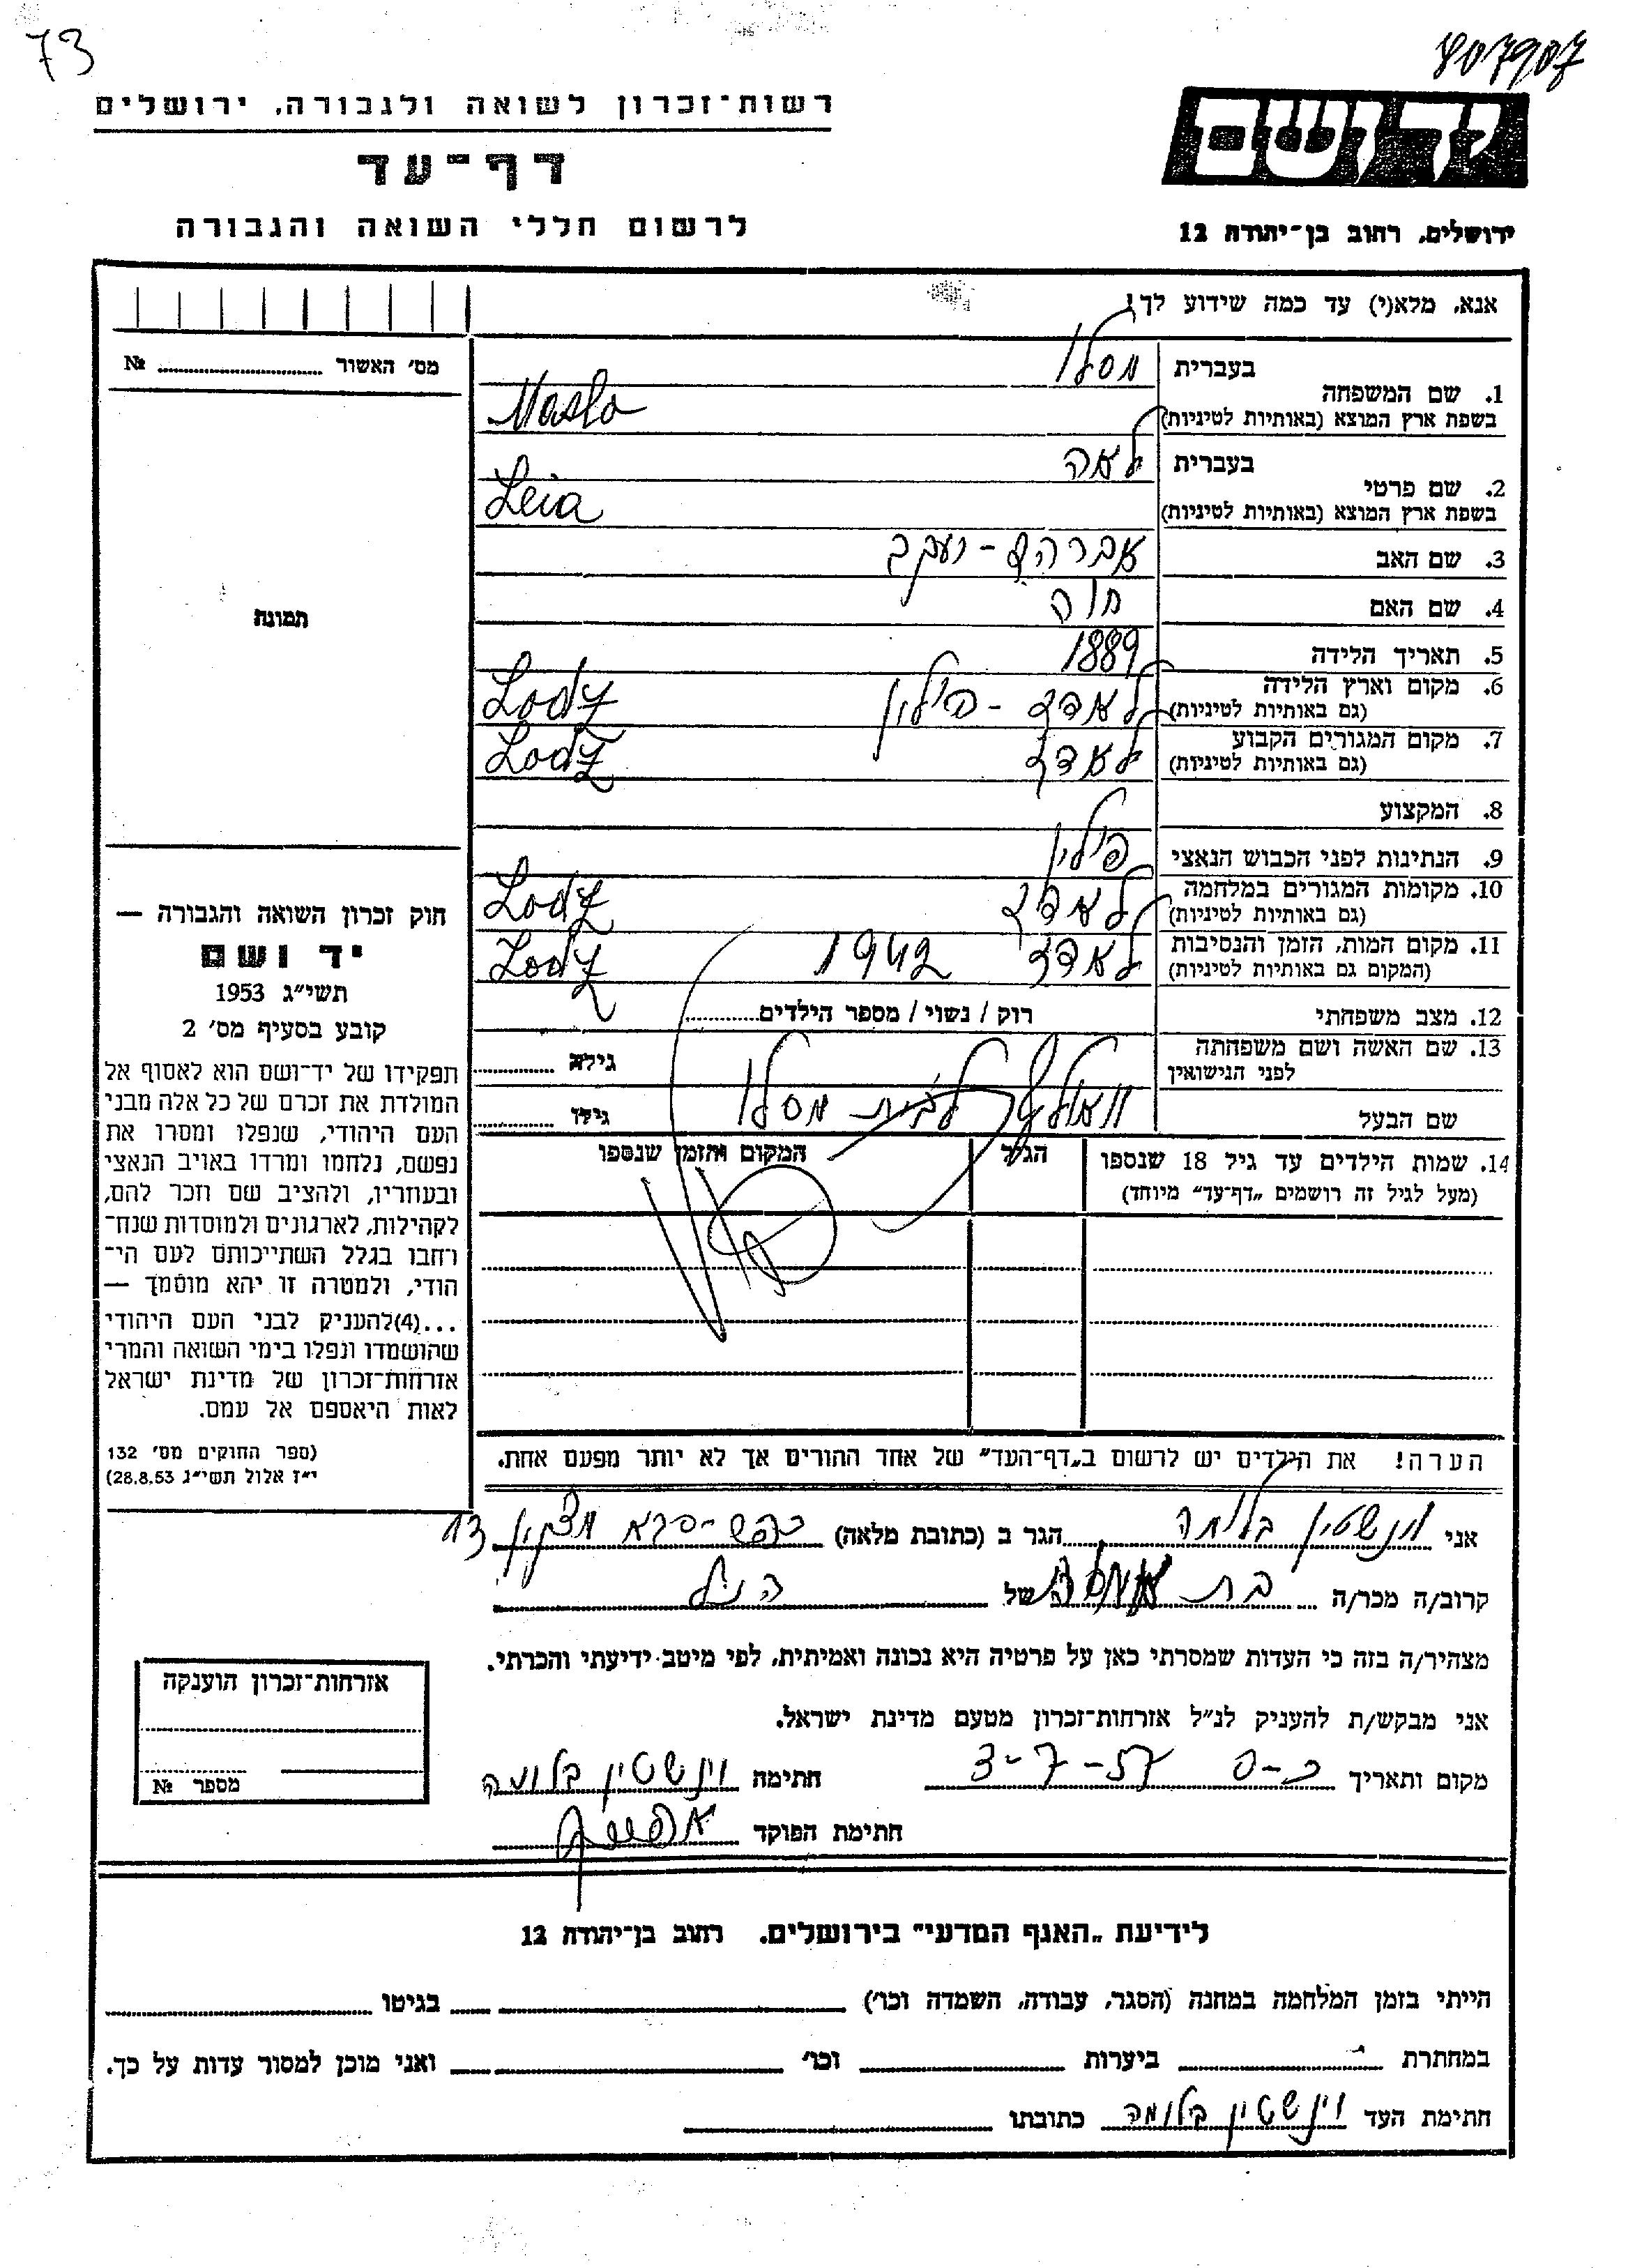 73
807907
רשות־זכרון לשואה ולגבורה, ירושלים
דף־עד
לרשום חללי השואה והגבורה
ידושם
ירושלים, רחוב בן־יהודה 12
אנא, מלא(י) עד כמה שידוע לך!
מס׳ האשור ........ №
תמונה
בעברית מסלו
1. שם המשפחה
בשפת ארץ המוצא (באותיות לטיניות) Maslo
בעברית לאה
2. שם פרטי
בשפת ארץ המוצא (באותיות לטיניות) Leia
3. שם האב אברהם - יעקב
4. שם האם חוה
5. תאריך הלידה 1889
6. מקום וארץ הלידה לאדז - פילון Lodz
(גם באותיות לטיניות)
7. מקום המגורים הקבוע לאדז Lodz
(גם באותיות לטיניות)
8. המקצוע
9. הנתינות לפני הכבוש הנאצי פילון
10. מקומות המגורים במלחמה לאדז Lodz
(גם באותיות לטיניות)
11. מקום המות, הזמן והנסיבות לאדז 1942 Lodz
(המקום גם באותיות לטיניות)
12. מצב משפחתי רוק / נשוי / מספר הילדים........
13. שם האשה ושם משפחתה גילה ........
לפני הנישואין
לבית מסלו
שם הבעל גילו ........
14. שמות הילדים עד גיל 18 שנספו הגיל המקום והזמן שנספו
(מעל לגיל זה רושמים „דף־עד״ מיוחד)
חוק זכרון השואה והגבורה —
יד ושם
תשי״ג 1953
קובע בסעיף מס׳ 2
תפקידו של יד־ושם הוא לאסוף אל
המולדת את זכרם של כל אלה מבני
העם היהודי, שנפלו ומסרו את
נפשם, נלחמו ומרדו באויב הנאצי
ובעוזריו, ולהציב שם וזכר להם,
לקהילות, לארגונים ולמוסדות שנח־
רחבו בגלל השתייכותם לעם הי־
הודי, ולמטרה זו יהא מוסמך —
...(4)להעניק לבני העם היהודי
שהושמדו ונפלו בימי השואה והמרי
אזרחות־זכרון של מדינת ישראל
לאות היאספם אל עמם.
(ספר החוקים מס׳ 132
י״ז אלול תשי״ג 28.8.53)
הערה! את הילדים יש לרשום ב„דף־העד״ של אחד ההורים אך לא יותר מפעם אחת.
אני וינשטין בלומה הגר ב (כתובת מלאה) 13
קרוב/ה מכר/ה בת של הנ״ל
מצהיר/ה בזה כי העדות שמסרתי כאן על פרטיה היא נכונה ואמיתית, לפי מיטב ידיעתי והכרתי.
אני מבקש/ת להעניק לנ״ל אזרחות־זכרון מטעם מדינת ישראל.
מקום ותאריך 3-7-57 חתימה וינשטין בלומה
חתימת הפוקד
אזרחות־זכרון הוענקה
מספר №
לידיעת „האגף המדעי״ בירושלים. רחוב בן־יהודה 12
הייתי בזמן המלחמה במחנה (הסגר, עבודה, השמדה וכו׳) ........ בגיטו ........
במחתרת ........ ביערות ........ וכו׳ ........ ואני מוכן למסור עדות על כך.
חתימת העד וינשטין בלומה כתובתו ........